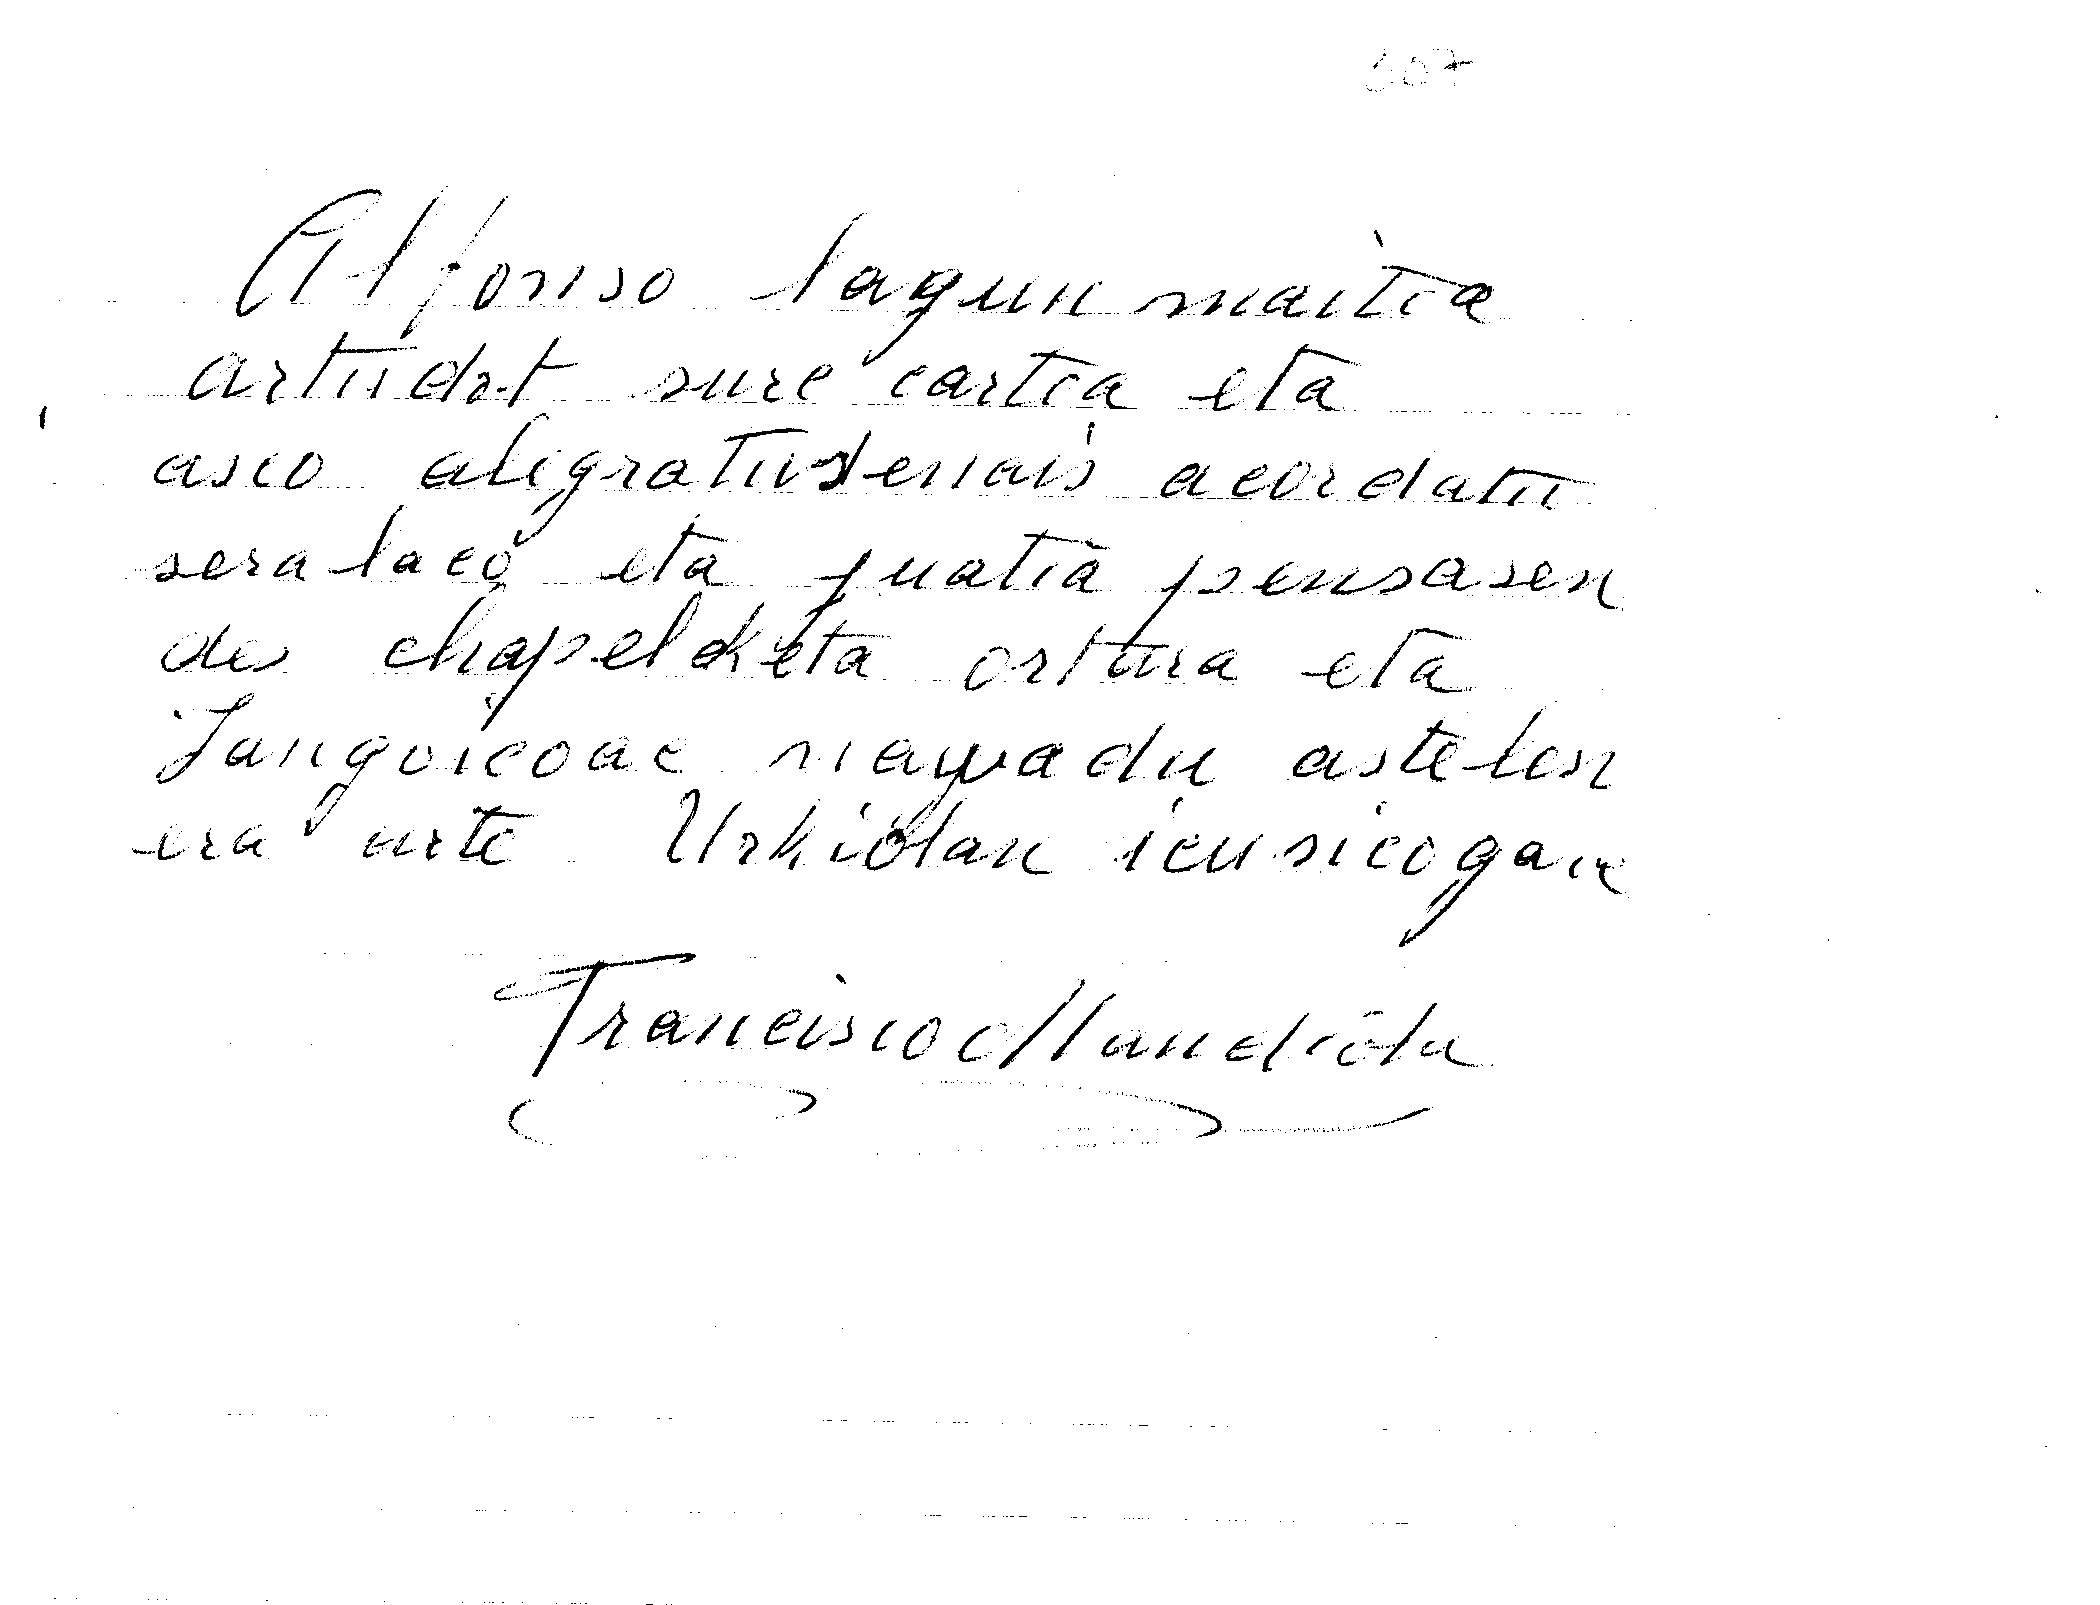 607
Alfonso lagun maitia
artudot sure cartia eta
asco alegratusenais acordatu
seralaco eta juatia pensasen
des chapelketa ortara eta
Jangoicoac nayvadu astelen
era arte Urkiolan icusicogara
Francisco Mandiola